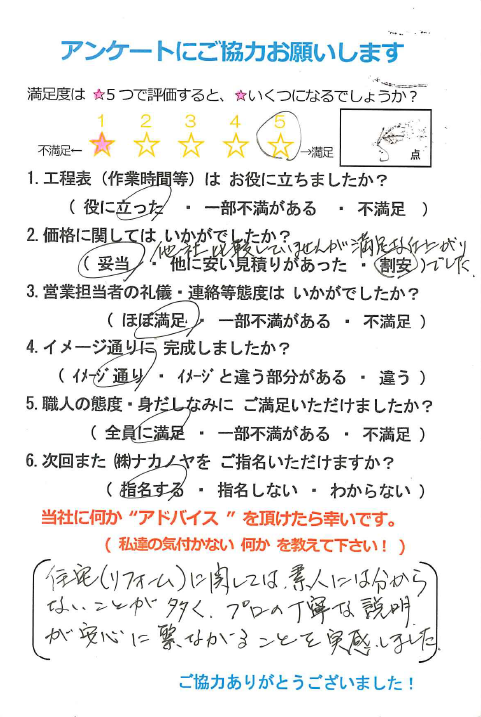 アンケートにご協力お願いします
満足度は ★5つで評価すると、★いくつになるでしょうか？
1 2 3 4 5
不満足← →満足
点
1. 工程表（作業時間等）は お役に立ちましたか？
（ 役に立った ・ 一部不満がある ・ 不満足 ）
2. 価格に関しては いかがでしたか？
他社比較していませんが満足な仕上がりでした
（ 妥当 ・ 他に安い見積りがあった ・ 割安 ）
3. 営業担当者の礼儀・連絡等態度は いかがでしたか？
（ ほぼ満足 ・ 一部不満がある ・ 不満足 ）
4. イメージ通りに 完成しましたか？
（ ｲﾒｰｼﾞ通り ・ ｲﾒｰｼﾞと違う部分がある ・ 違う ）
5. 職人の態度・身だしなみに ご満足いただけましたか？
（ 全員に満足 ・ 一部不満がある ・ 不満足 ）
6. 次回また ㈱ナカノヤを ご指名いただけますか？
（ 指名する ・ 指名しない ・ わからない ）
当社に何か “アドバイス ” を頂けたら幸いです。
（ 私達の気付かない 何か を教えて下さい！ ）
住宅（リフォーム）に関しては、素人には分から
ないことが多く、プロの丁寧な説明
が安心に繋ながることを実感しました。
ご協力ありがとうございました！